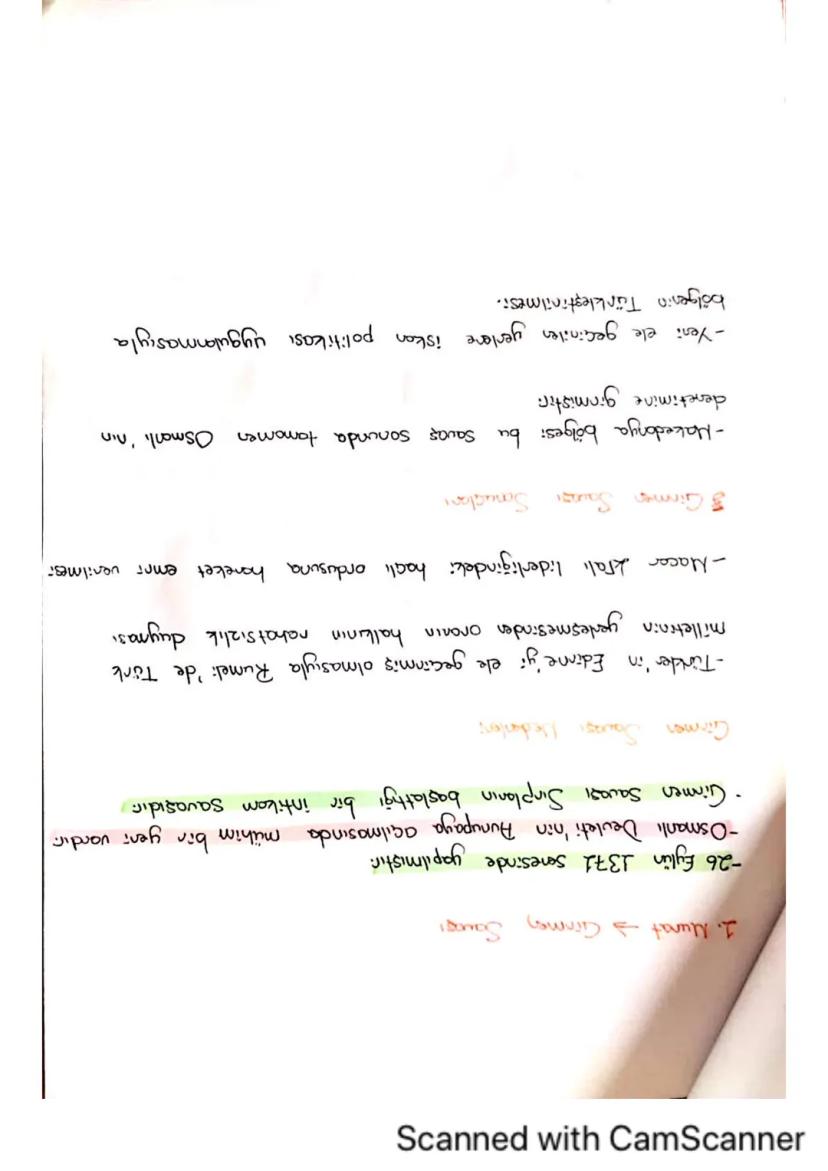 1. Murat → Çirmen Savaşı
-26 Eylün 1371 senesinde yapılmıştır.
-Osmanlı Devleti'nin Avrupaya açılmasında mühim bir yeri vardır.
- Çirmen Savası Sırpların başlattığı bir intikam savaşıdır.
Çirmen Savası Nedenleri
-Türkler'in Edirne'yi ele geçirmiş olmasıyla Rumeli'de Türk
milletinin yerleşmesinden oranın halkının rahatsızlık duyması
-Macar kralı liderliğindeki haçlı ordusuna hareket emri verilmesi
Çirmen Savaşı Sonuçları
-Makedonya bölgesi bu savaş sonunda tamamen Osmanlı'nın
denetimine girmiştir.
-Yeni ele geçirilen yerlere iskan politikası uygulanmasıyla
bölgenin Türkleştirilmesi.
Scanned with CamScanner